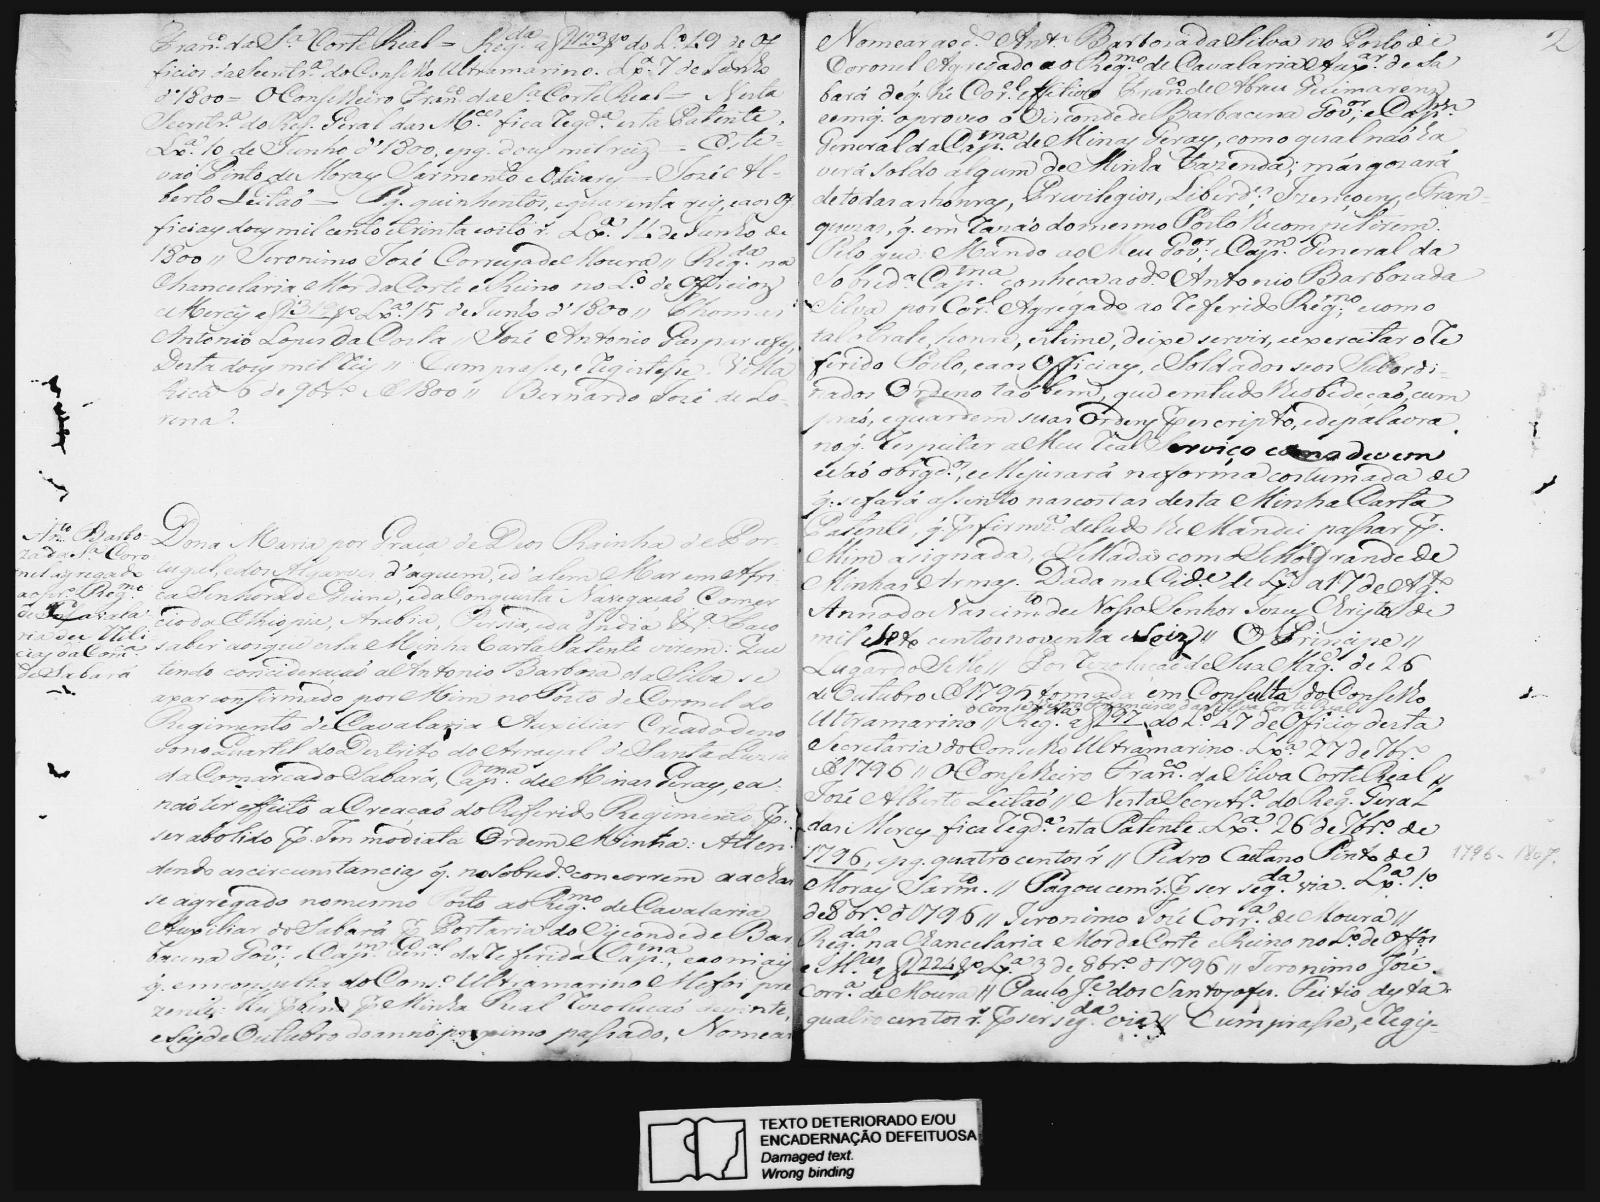 Fran.co da S.a Corte Real = Reg.da a f 123 v.o do L.o 49 de Of
ficios da Secretr.a do Conselho Ultramarino. Lx.a 7 de Junho
d'1800 = O Conselheiro Fran.co da S.a Corte Real = Nesta
Secretr.a do Reg. Geral das M.ces fica regd.a esta Patente.
Lx.a 10 de Junho d'1800, e pg. dous mil reiz = Este-
vaõ Pinto de Moraes Sarmento e Olivary = José Al-
berto Leitaõ = Pg. quinhentos, e quarenta reis, e aos Of
ficiaes dous mil cento e trinta e oito r.s Lx.a 14 de Junho de
1800 // Jeronimo José Correya de Moura // Reg.da na
Chancelaria Mor da Corte e Reino no L.o de Officioz
e Mercês a f v.o Lx.a 15 de Junho d'1800 // Thomas
Antonio Lopes da Costa // José Antonio Gaspar a fez,
Desta dous mil reis // Cumprase, e registese. Villa
Rica 6 de 9br.o d'1800 // Bernardo José de Lo-
rena.
An.to Barbo-
za da S.a Coro
nel agregado
ao pr.o Reg.mo
de Cavala
ria de Mili
cias da Com.ca
de Sabará
Dona Maria por Graça de Deos Rainha de Por-
tugal, e dos Algarves d'aquem, e d'alem Mar em Afri
ca Senhora de Guiné, e da Conquista Navegaçaõ Comer
cio da Ethiopia, Arabia, Persia, e da India &.a Faço
saber aos que esta Minha Carta Patente virem: Que
tendo concideraçaõ a Antonio Barbosa da Silva se
axar confirmado por Mim no Posto de Coronel do
Regimento de Cavalaria Auxiliar Creado de no
vo no Quartel do Destrito do Arrayal de Santa Luzia
da Comarca do Sabará, Cap.na de Minas Geraes, e a
naõ ter effeito a Creaçaõ do Referido Regimento p.
ser abolido p. Inmodiata Ordem Minha: Aten-
dendo as circunstancias q. no sobred.o concorrem a achar
se agregado no mesmo Posto ao Reg.mo de Cavalaria
Auxiliar do Sabará p. Portaria do Visconde de Bar
bacena Gov.or, e Cap.m Gen.al da referida Cap.na, e ao mais
q. em consulta do Cons.o Ultramarino Me foi pre
zente: Hei p. bem p. Minha Real Rezoluçaõ de vinte,
e Seis de Outubro do anno proximo passado, Nomear
2
Nomear ao d.o Ant.o Barbosa da Silva no Posto de
Coronel Agregado ao Reg.mo de Cavalaria Aux.ar de Sa
bará de q. hé Cor.el effetivo Fran.co de Abreu Guimarenz
em q. o proveo o Visconde de Barbacena Gov.or, e Cap.m
General da Cap.na de Minas Geraes, como qual naõ ha
verá soldo algum de Minha Fazenda; más gozará
de todas as honras, Privilegios, Liberd.es, Izençoens, e Fran-
quezas, q. em razaõ do mesmo Posto lhe competirem.
Pelo que Mando ao Meu Gov.or, e Cap.m General da
sobred.a Cap.na conheça ao d.o Antonio Barbosa da
Silva por Cor.el Agregado ao referido Reg.mo, e como
tal o trate, honre, estime, deixe servir, e exercitar o re
ferido Posto, e aos Officiaes, e Soldados seos Subordi-
nados Ordeno taõ bem, que em tudo lhe obdeçaõ, cum
praõ, e guardem suas Ordens p. escripto, e de palavra
no q. respeitar a Meu real Serviço como devem
e saõ obrgd.os, e Me jurará na forma costumada de
q. se fará assento nas costas desta Minha Carta
Patente, q. p. firmz.a de tudo lhe Mandei passar p.
Mim asignada, e Sellada com o Sello Grande de
Minhas Armas. Dada na Cid.e de Lx.a a 17 de Ag.to
Anno do Nascim.to de Nosso Senhor Jezus Christo de
mil sete centos noventa e seiz // O Principe //
Lugar do Sello // Por rezoluçaõ de Sua Mag.e de 26
de Outubro d'1795 tomada em Consulta do Conselho
o Conselheiro Francisco da Silva Corte Real
Ultramarino // Reg.da a f 97 do L.o 47 de Officios desta
Secretaria do Conselho Ultramarino. Lx.a 27 de 7br.o
d'1796 // O Conselheiro Fran.co da Silva Corte Real //
José Alberto Leitaõ // Nesta Secretr.a do Reg.o Geral
das Merces fica regd.a esta Patente. Lx.a 26 de 7br.o de
1796, e pg. quatro centos r.s // Pedro Caetano Pinto de
1796 - 1807.
Moraes Sarm.to // Pagou cem r.s p. ser seg.da via. Lx.a 1.o
de 8br.o d'1796 // Jeronimo José Corr.a de Moura //
Reg.da na Chancelaria Mor da Corte e Reino no L.o de Off.os
e M.ces a f 224 v.o Lx.a 3 de 8br.o d'1796 // Jeronimo José
Corr.a de Moura // Paulo J.e dos Santos a fes. Feitio desta
quatro centos r.s p. ser seg.da via // Cumprase, e regis-
TEXTO DETERIORADO E/OU
ENCADERNAÇÃO DEFEITUOSA
Damaged text.
Wrong binding